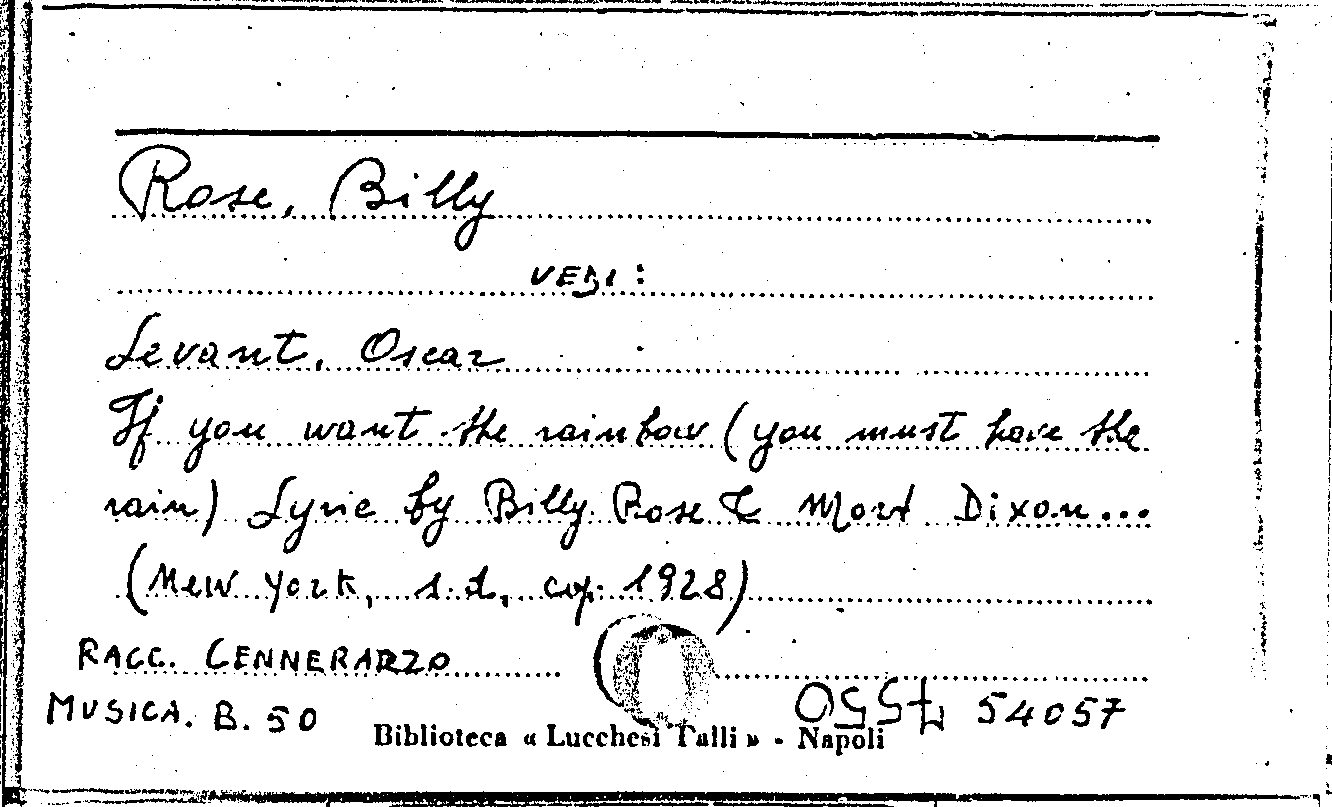 Rose, Billy
VEDI:
Levant, Oscar
If you want the rainbow (you must have the
rain) Lyric by Billy Rose & Mort Dixon...
(New York, s.d., cop. 1928)
RACC. CENNERAZZO
MUSICA. B. 50
54057
Biblioteca « Lucchesi Palli » - Napoli